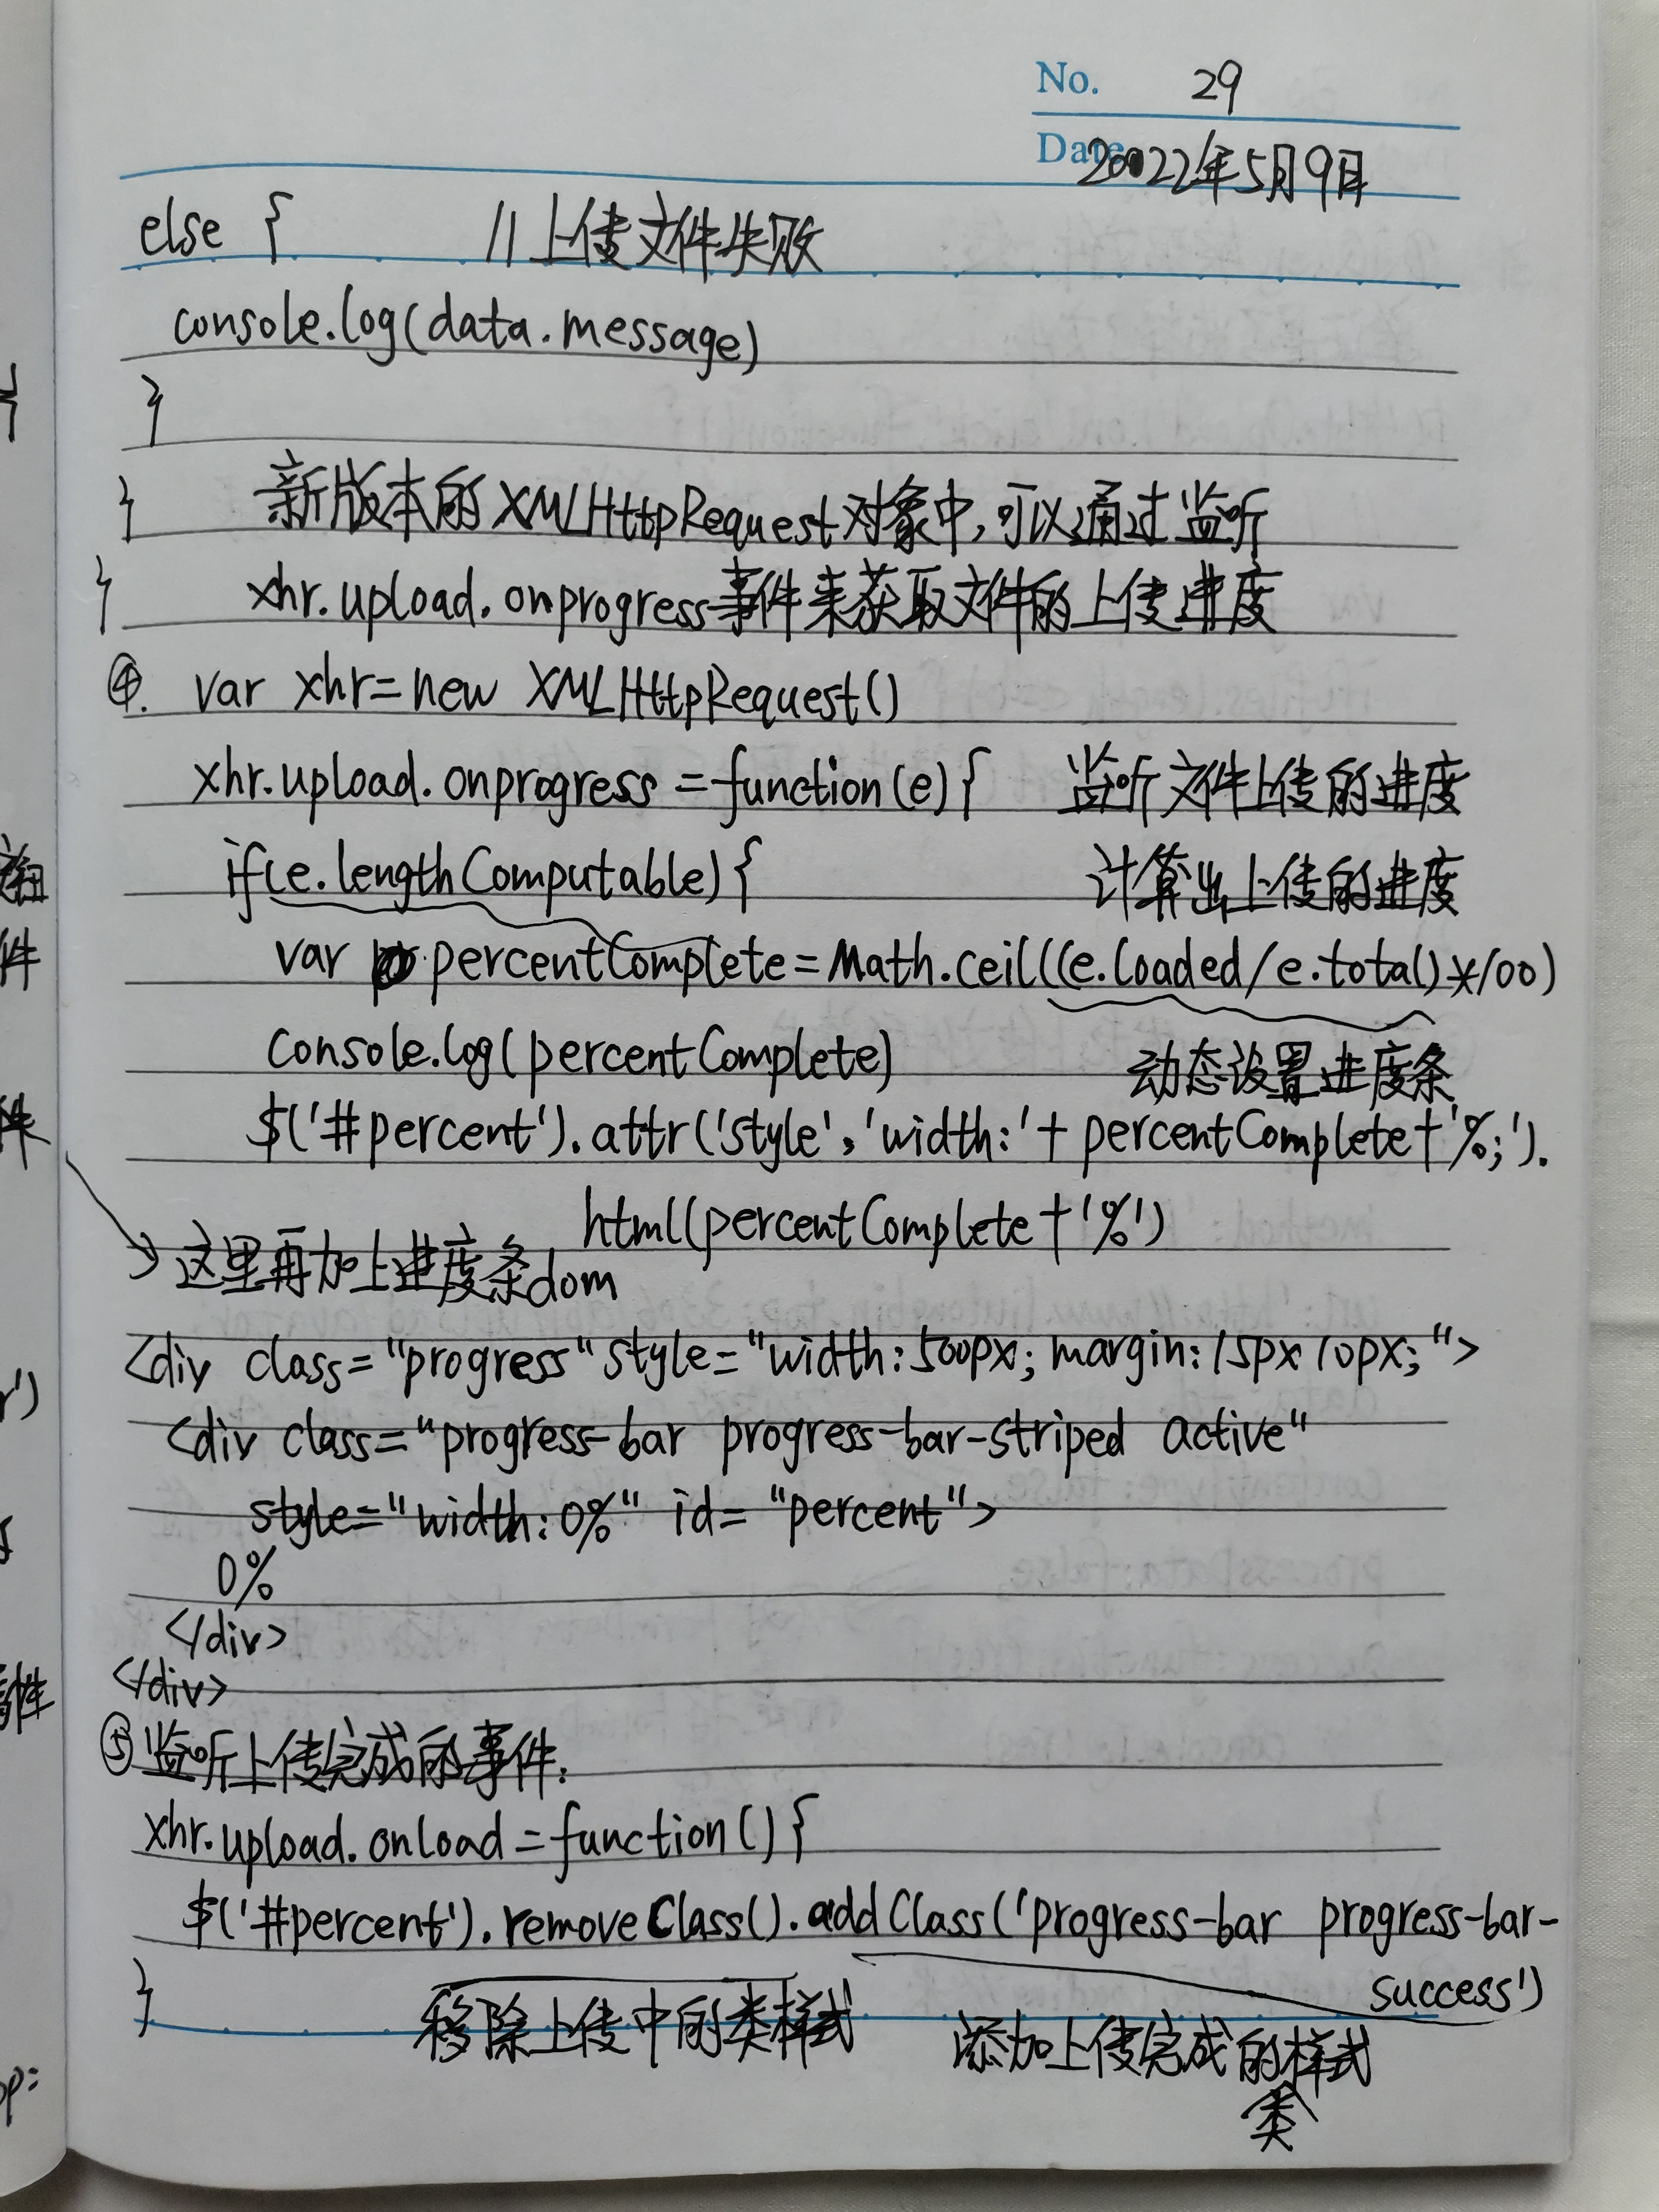 No. 29
Date 20022年5月9日
else { //上传文件失败
console.log(data.message)
}
} 新版本的XMLHttpRequest对象中,可以通过监听
} xhr.upload.onprogress事件来获取文件的上传进度
④. var xhr=new XMLHttpRequest()
xhr.upload.onprogress=function(e){ 监听文件上传的进度
if(e.lengthComputable){ 计算出上传的进度
var percentComplete=Math.ceil((e.loaded/e.total)*100)
console.log(percentComplete) 动态设置进度条
$('#percent').attr('style','width:'+percentComplete+'%;').
html(percentComplete+'%')
→这里再加上进度条dom
<div class="progress" style="width:500px; margin:15px 10px;">
<div class="progress-bar progress-bar-striped active"
style="width:0%" id="percent">
0%
</div>
</div>
⑤监听上传完成的事件:
xhr.upload.onload=function(){
$('#percent').removeClass().addClass('progress-bar progress-bar-
success')
}
移除上传中的类样式 添加上传完成的类样式